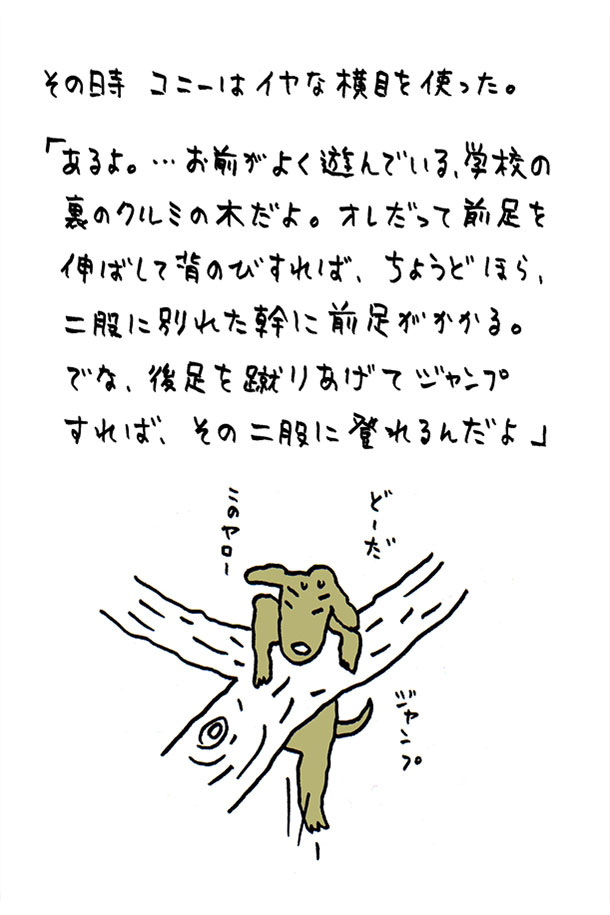 その時 コニーはイヤな横目を使った。
「あるよ。…お前がよく遊んでいる、学校の
裏のクルミの木だよ。オレだって前足を
伸ばして背のびすれば、ちょうどほら、
二股に別れた幹に前足がかかる。
でな、後足を蹴りあげてジャンプ
すれば、その二股に登れるんだよ」
どーだ
このヤロー
ジャンプ